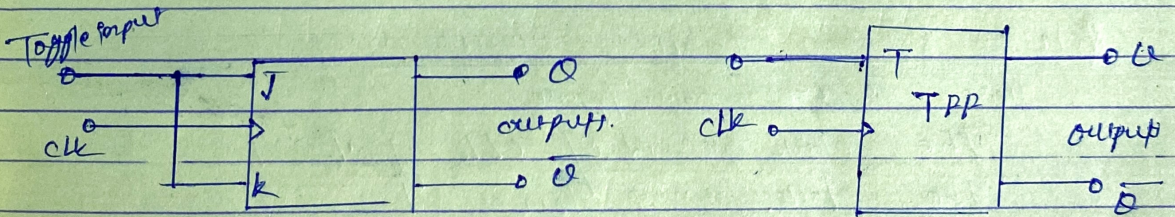 Toggle input
J
Q
clk
outputs.
K
Q̅
T
Q
TFF
clk
output
Q̅